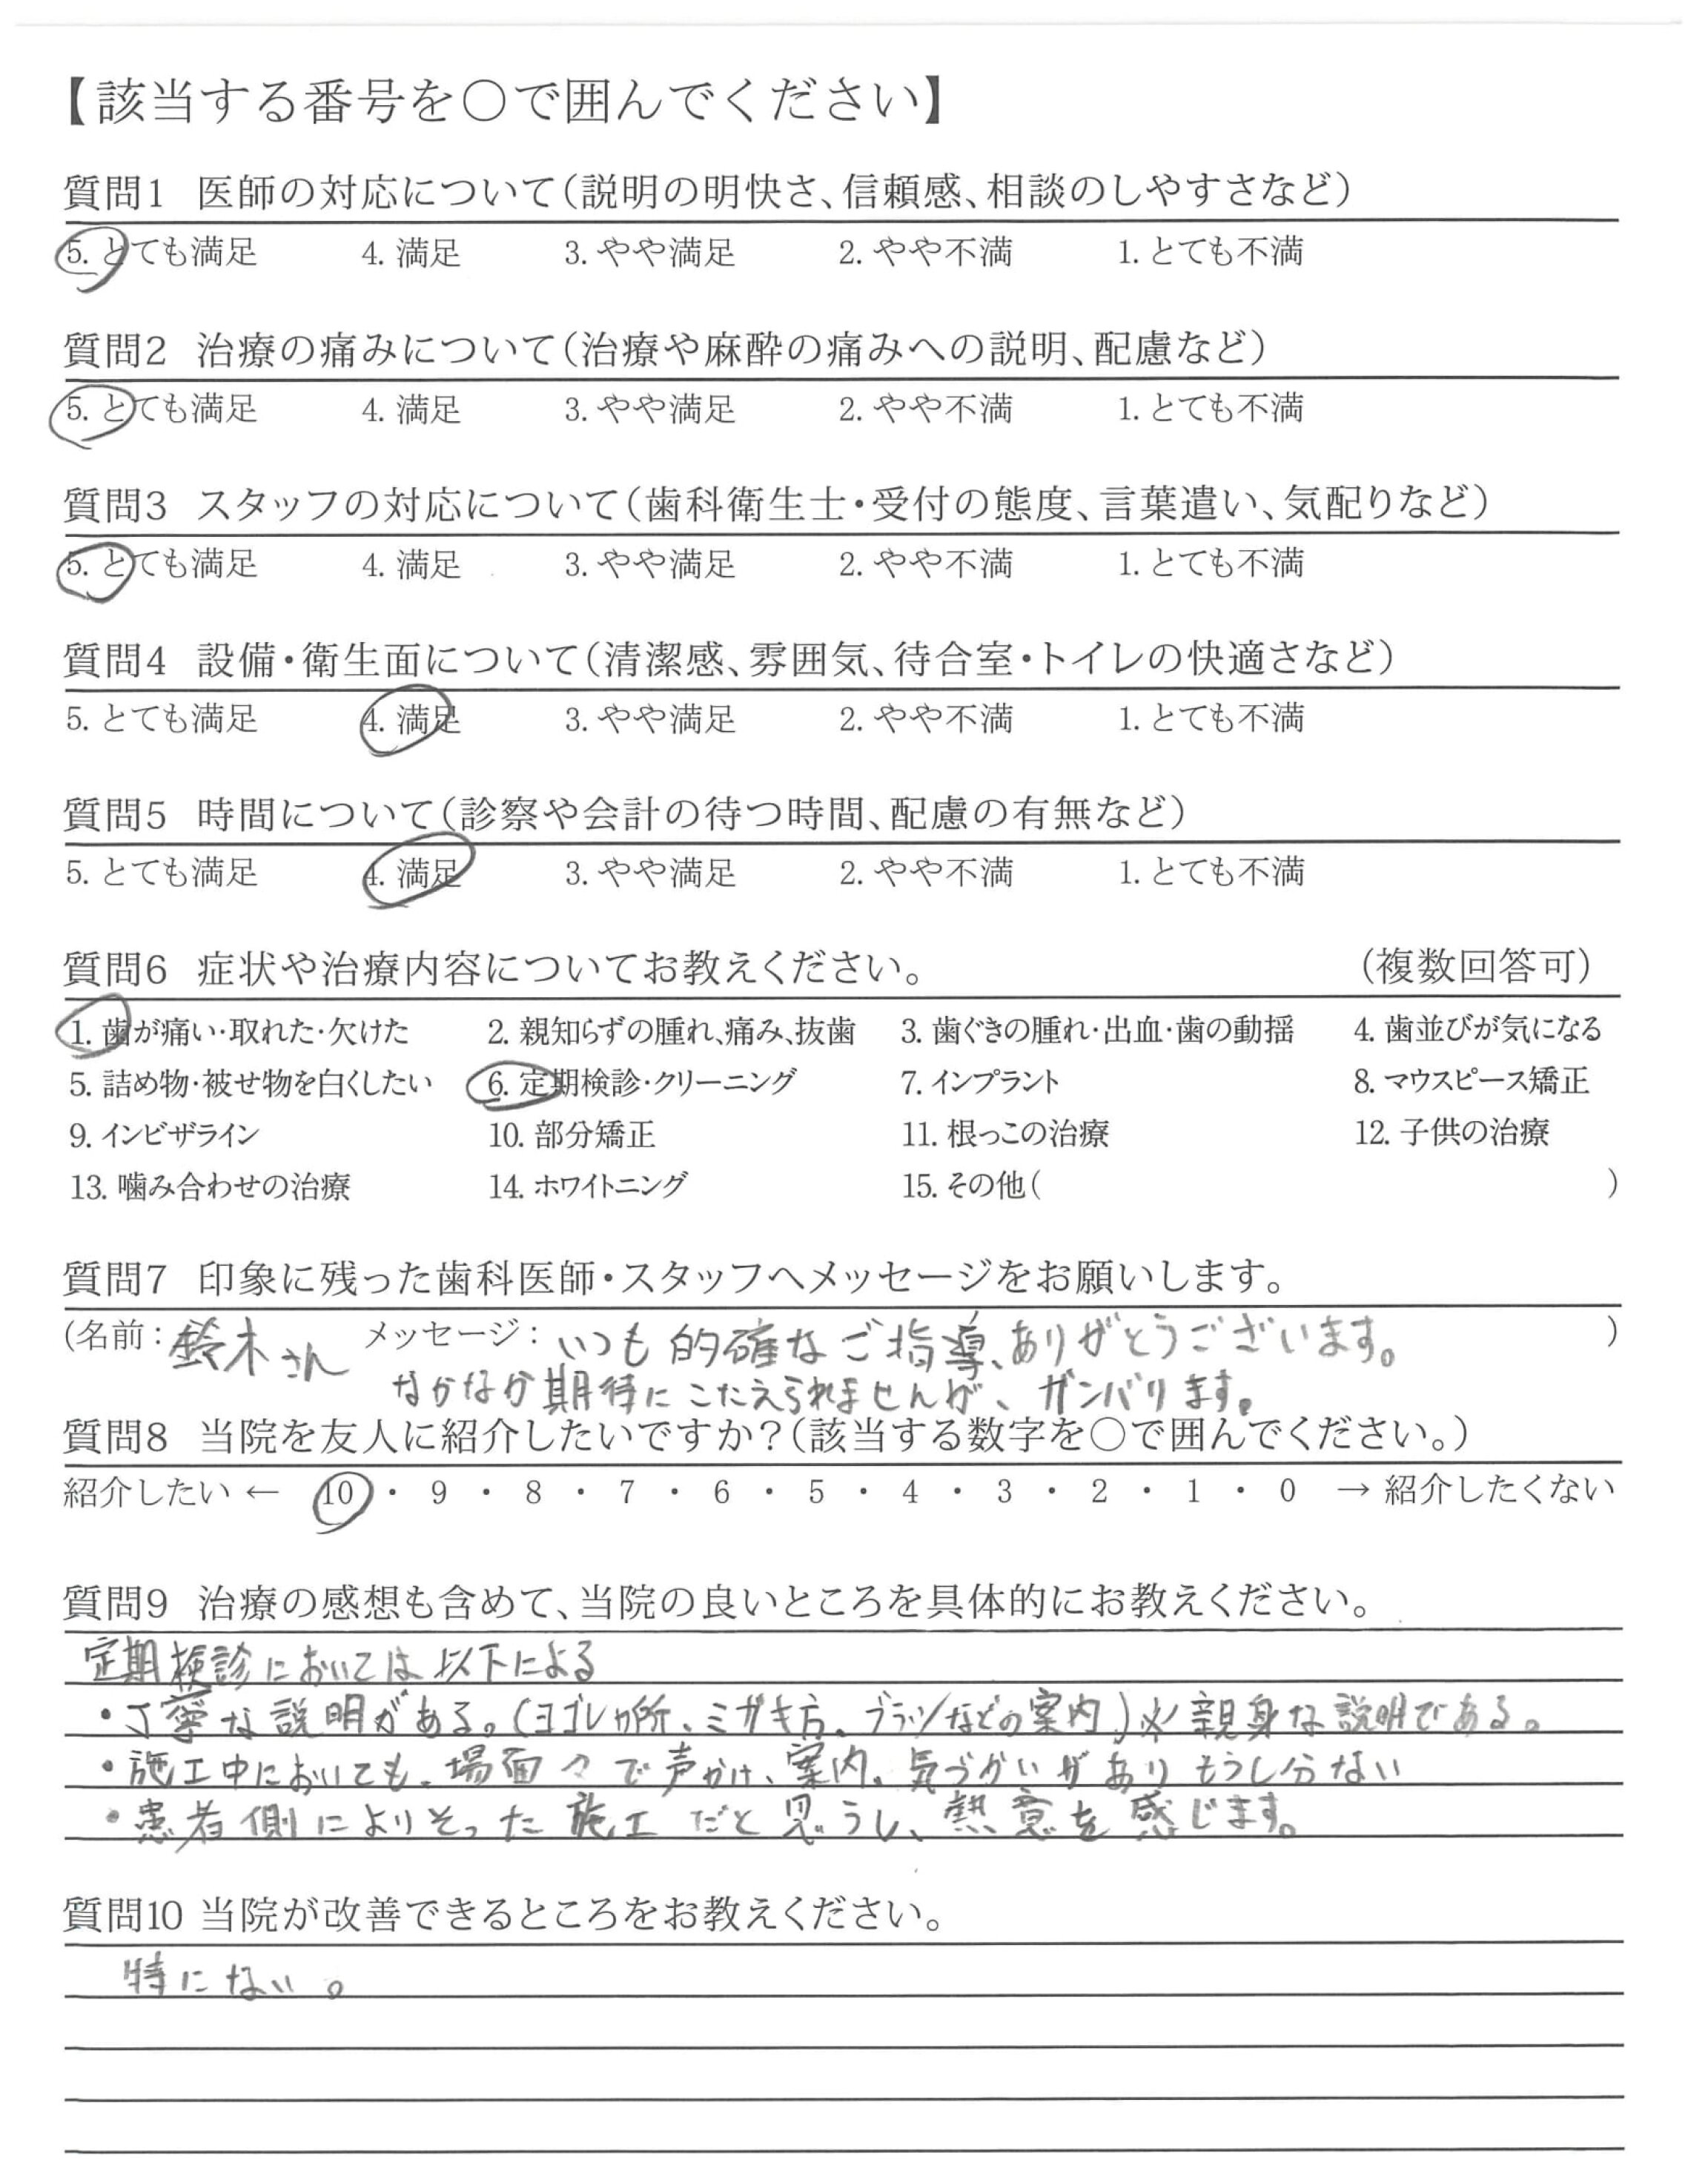 【該当する番号を○で囲んでください】
質問1 医師の対応について(説明の明快さ、信頼感、相談のしやすさなど)
5. とても満足 4. 満足 3. やや満足 2. やや不満 1. とても不満
質問2 治療の痛みについて(治療や麻酔の痛みへの説明、配慮など)
5. とても満足 4. 満足 3. やや満足 2. やや不満 1. とても不満
質問3 スタッフの対応について(歯科衛生士・受付の態度、言葉遣い、気配りなど)
5. とても満足 4. 満足 3. やや満足 2. やや不満 1. とても不満
質問4 設備・衛生面について(清潔感、雰囲気、待合室・トイレの快適さなど)
5. とても満足 4. 満足 3. やや満足 2. やや不満 1. とても不満
質問5 時間について(診察や会計の待つ時間、配慮の有無など)
5. とても満足 4. 満足 3. やや満足 2. やや不満 1. とても不満
質問6 症状や治療内容についてお教えください。 (複数回答可)
1. 歯が痛い・取れた・欠けた 2. 親知らずの腫れ、痛み、抜歯 3. 歯ぐきの腫れ・出血・歯の動揺 4. 歯並びが気になる
5. 詰め物・被せ物を白くしたい 6. 定期検診・クリーニング 7. インプラント 8. マウスピース矯正
9. インビザライン 10. 部分矯正 11. 根っこの治療 12. 子供の治療
13. 噛み合わせの治療 14. ホワイトニング 15. その他( )
質問7 印象に残った歯科医師・スタッフへメッセージをお願いします。
(名前：鈴木さん メッセージ：いつも的確なご指導、ありがとうございます。 )
なかなか期待にこたえられませんが、ガンバリます。
質問8 当院を友人に紹介したいですか？(該当する数字を○で囲んでください。)
紹介したい ← 10 ・ 9 ・ 8 ・ 7 ・ 6 ・ 5 ・ 4 ・ 3 ・ 2 ・ 1 ・ 0 → 紹介したくない
質問9 治療の感想も含めて、当院の良いところを具体的にお教えください。
定期検診においては以下による
・丁寧な説明がある。(ヨゴレヵ所、ミガキ方、ブラシなどの案内)※親身な説明である。
・施工中においても、場面々で声かけ、案内、気づかいがありもうし分ない
・患者側によりそった施工だと思うし、熱意を感じます。
質問10 当院が改善できるところをお教えください。
特にない。